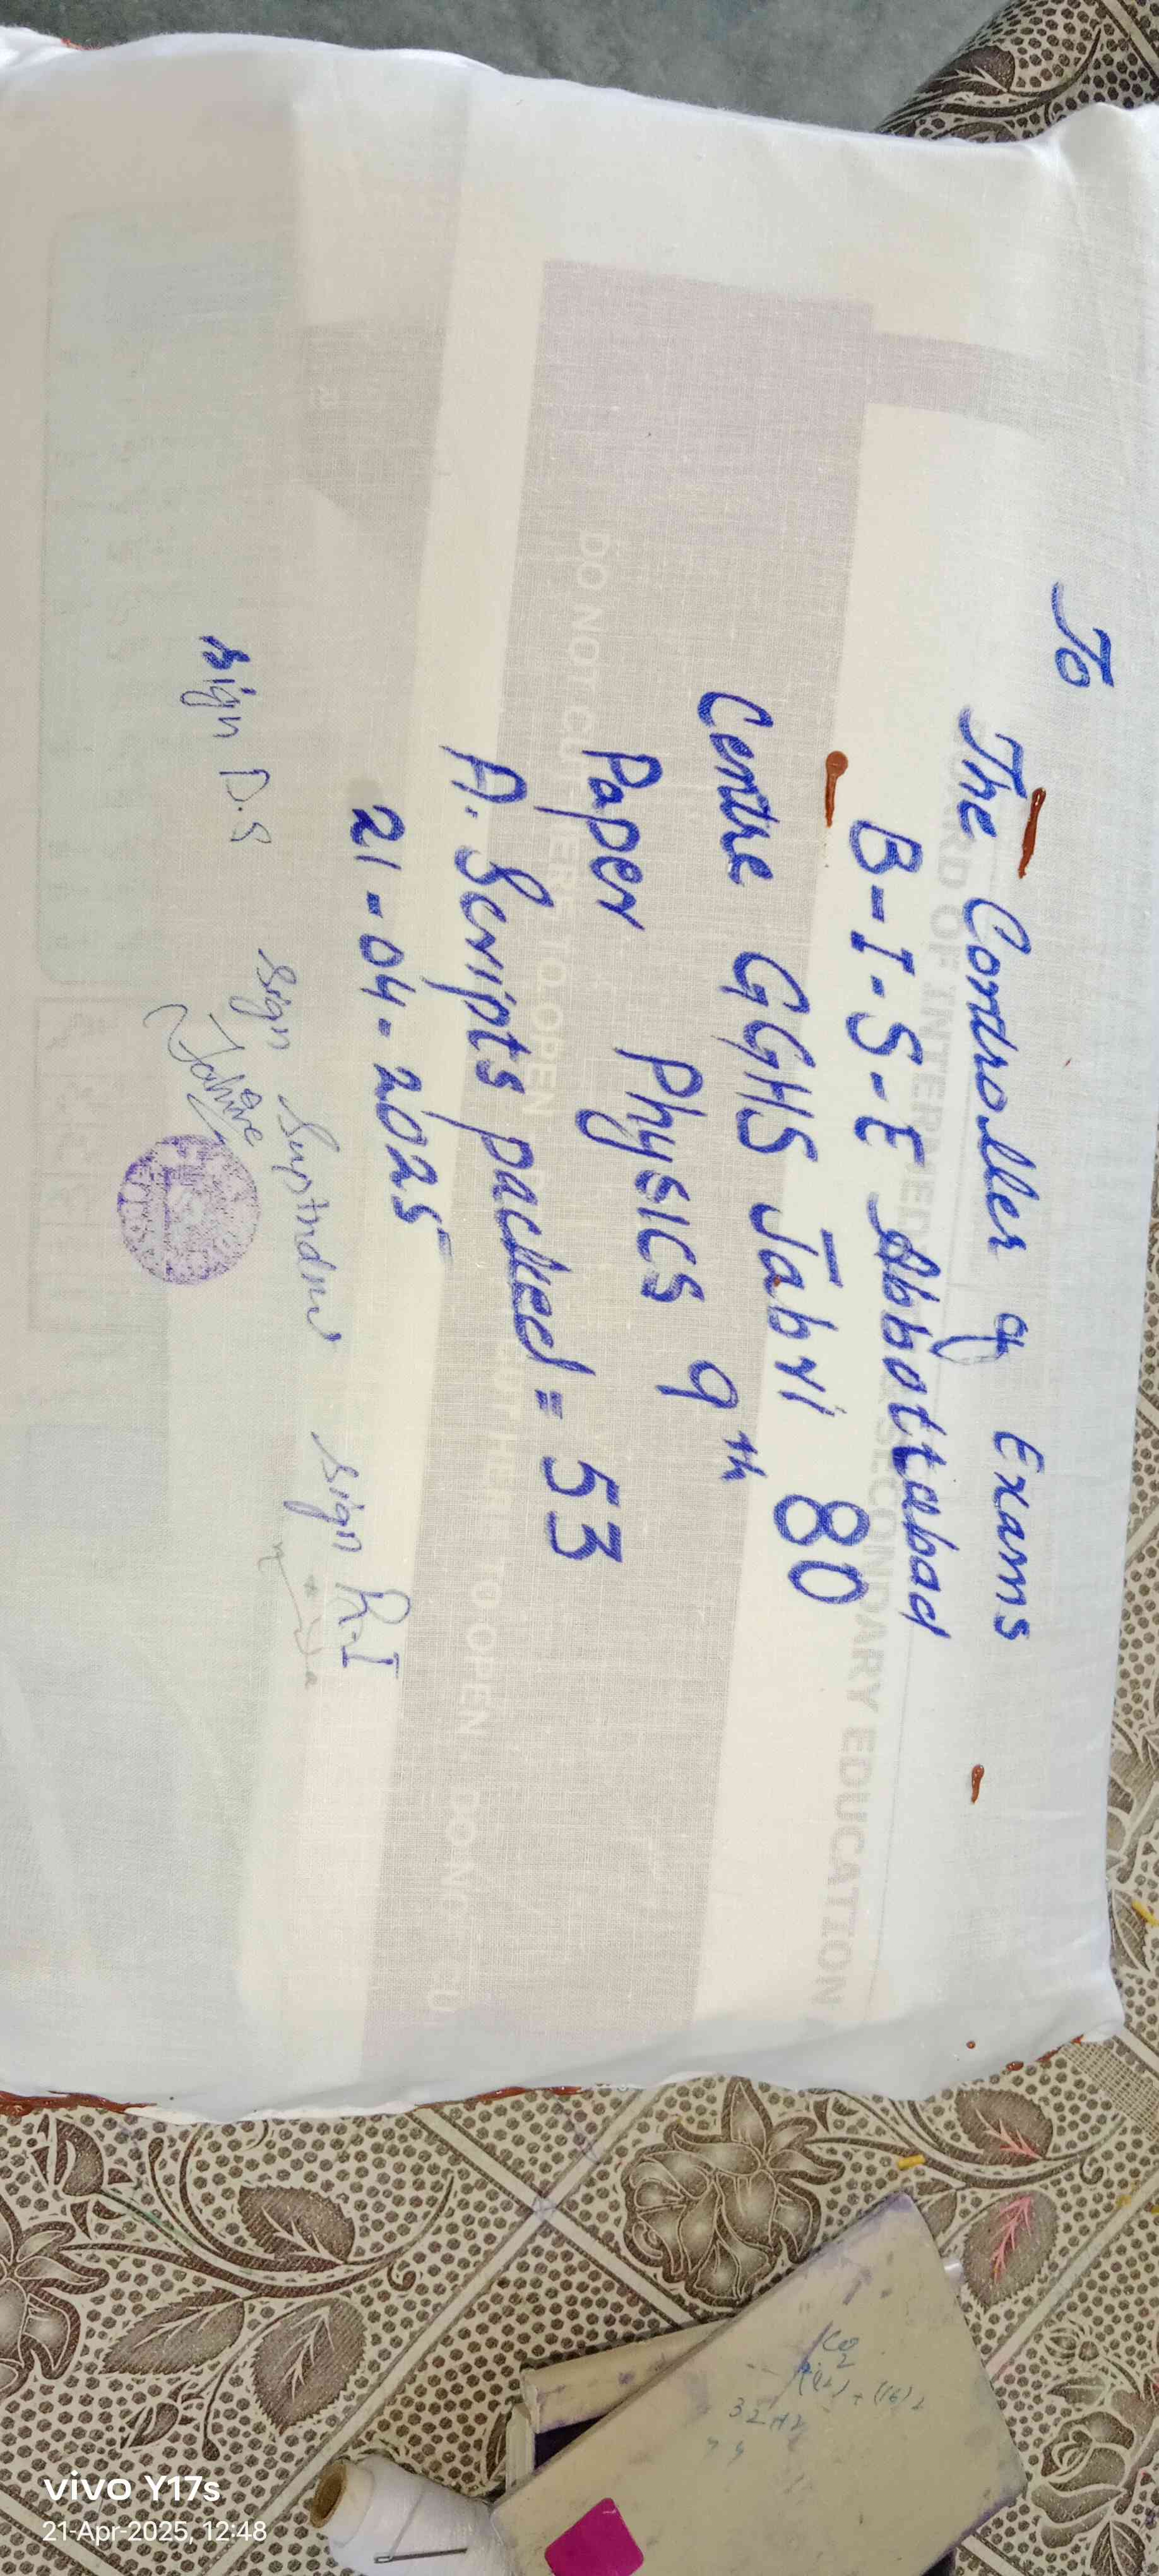 To
The Controller of Exams
B-I-S-E Abbottabad
Centre GGHS Jabri 80
Paper Physics 9th
A. Scripts packed = 53
21-04-2025
Sign D.S
Sign
Sign R-I
BOARD OF INTERMEDIATE & SECONDARY EDUCATION
DO NOT CUT HERE TO OPEN
CUT HERE TO OPEN DO NOT CU
vivo Y17s
21-Apr-2025, 12:48